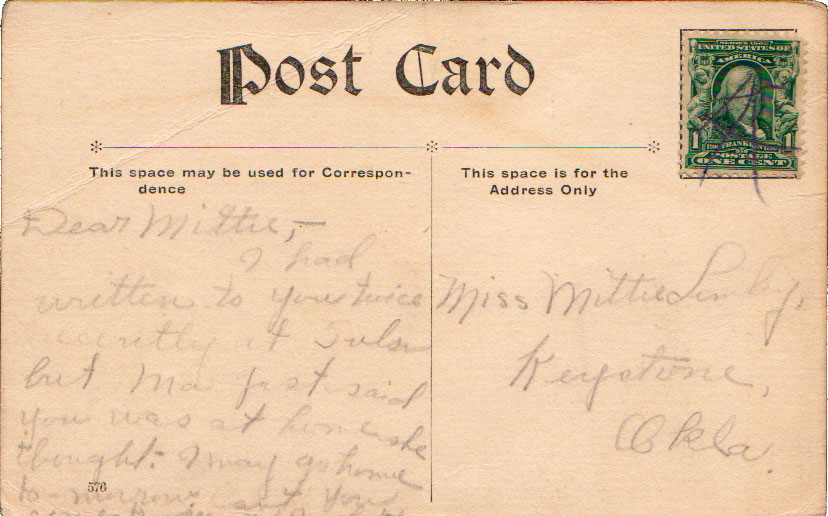 Post Card
SERIES 1902
UNITED STATES OF
AMERICA
1 1
FRANKLIN
POSTAGE
ONE CENT
This space may be used for Correspon-
dence
This space is for the
Address Only
Dear Mittie,—
I had
written to you twice
recently at Tulsa
but Ma just said
you was at home she
thought. I may go home
to-morrow can't you
Miss Mittie
Keystone,
Okla.
576